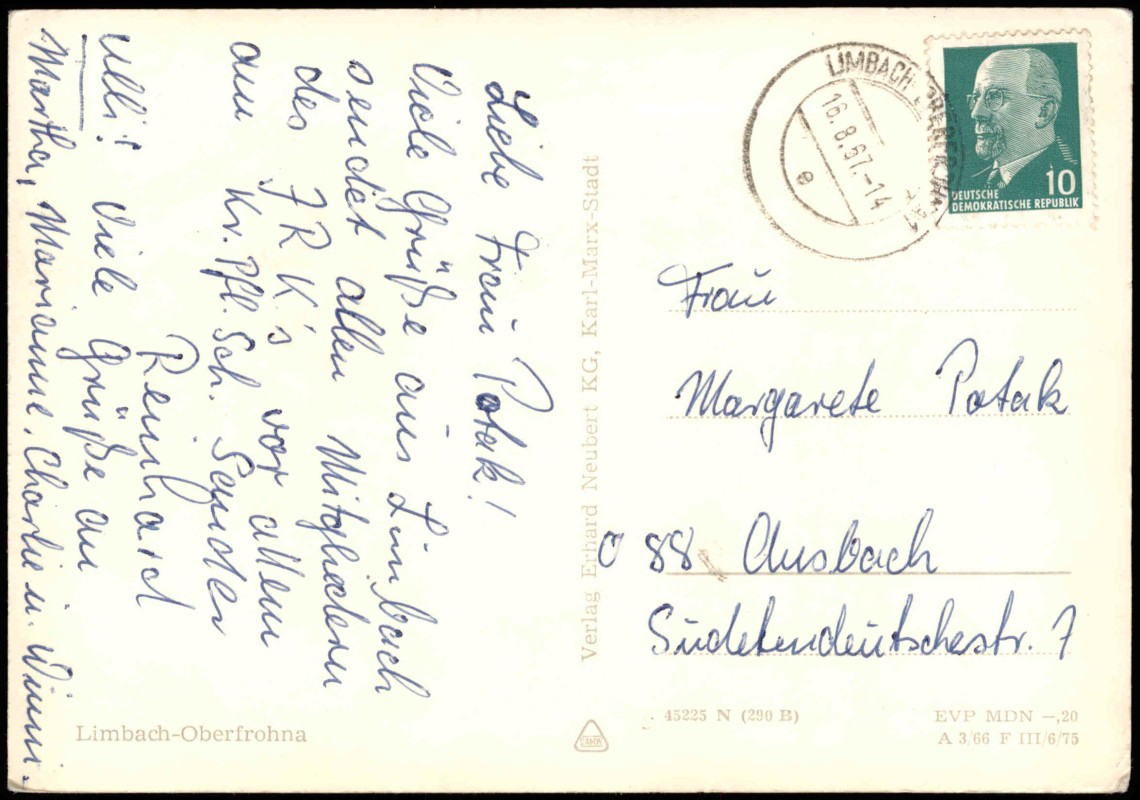 Liebe Frau Potak!
Viele Grüße aus Limbach
sendet allen Mitgliedern
des JRK's vor allem
an Kr. Pfl. Sch. Sender
Reinhard
Ulli! Viele Grüße an
Martha, Marianne, Charlie u. Winni.
Limbach-Oberfrohna
Verlag Erhard Neubert KG, Karl-Marx-Stadt
LIMBACH-OBERFROHNA
16.8.67.-14
e
10
DEUTSCHE
DEMOKRATISCHE REPUBLIK
Frau
Margarete Potak
88 Ansbach
Sudetendeutschestr. 7
45225 N (290 B)
EVP MDN –,20
A 3/66 F III/6/75